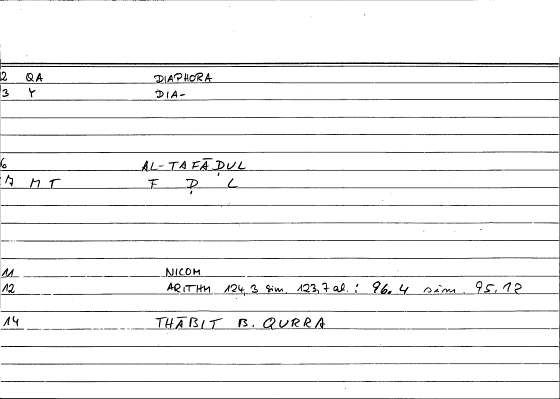 2 QA DIAPHORA
3 Y DIA-
6 AL-TAFĀḌUL
7 MT F Ḍ L
11 NICOM
12 ARITHM 124,3 sim. 123,7 al.: 96.4 sim. 95.12
14 THĀBIT B. QURRA